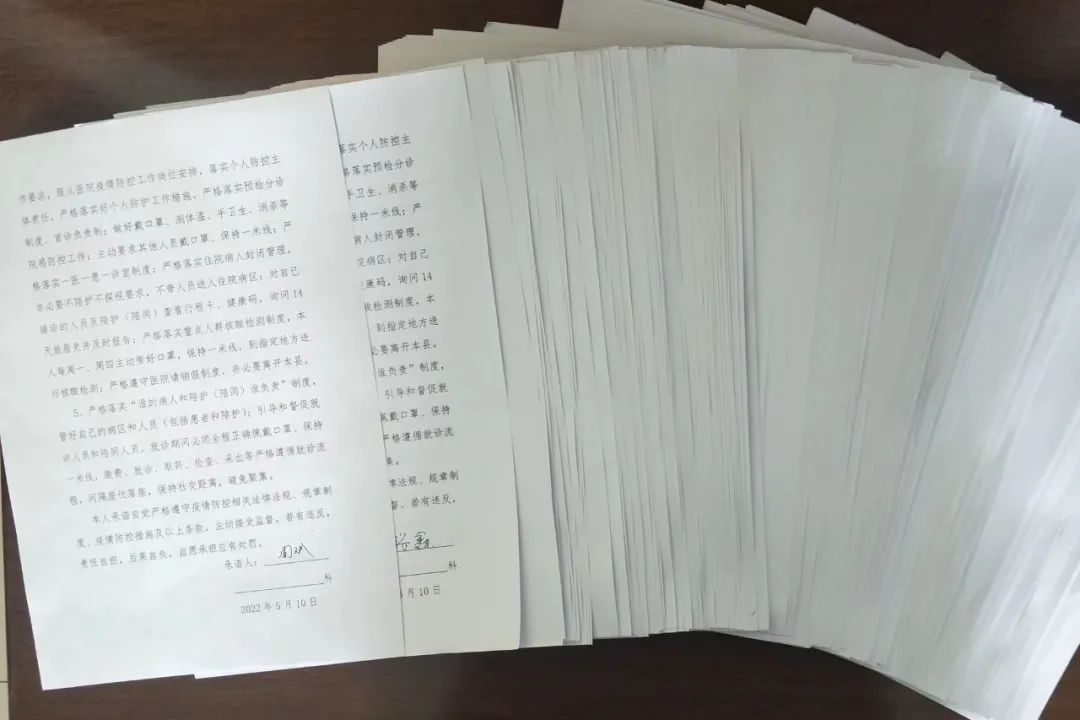 作要求，服从医院疫情防控工作岗位安排，落实个人防控主
体责任，严格落实好个人防护工作措施。严格落实预检分诊
制度、首诊负责制；做好戴口罩、测体温、手卫生、消杀等
院感防控工作；主动要求其他人员戴口罩、保持一米线；严
格落实一医一患一诊室制度；严格落实住院病人封闭管理，
非必要不陪护不探视要求，不带人员进入住院病区；对自己
接诊的人员及陪护（陪同）查看行程卡、健康码，询问14
天旅居史并及时报告；严格落实重点人群核酸检测制度，本
人每周一、周四主动带好口罩，保持一米线，到指定地方进
行核酸检测；严格遵守医院请销假制度，非必要离开本县。
5、严格落实“谁的病人和陪护（陪同）谁负责”制度，
管好自己的病区和人员（包括患者和陪护）；引导和督促就
诊人员和陪同人员，就诊期间必须全程正确佩戴口罩、保持
一米线，缴费、就诊、取药、检查、采血等严格遵循就诊流
程，间隔座位落座，保持社交距离，避免聚集。
本人承诺自觉严格遵守疫情防控相关法律法规、规章制
度、疫情防控措施及以上条款，主动接受监督。若有违反，
责任自担，后果自负，自愿承担应有处罚。
承诺人：周斌
科
2022年5月10日
落实个人防控主
格落实预检分诊
手卫生、消杀等
保持一米线；严
病人封闭管理，
病区；对自己
康码，询问14
检测制度，本
到指定地方进
必要离开本县。
谁负责”制度，
引导和督促就
戴口罩、保持
严格遵循就诊流
集。
律法规、规章制
督。若有违反，
鑫
科
5月10日